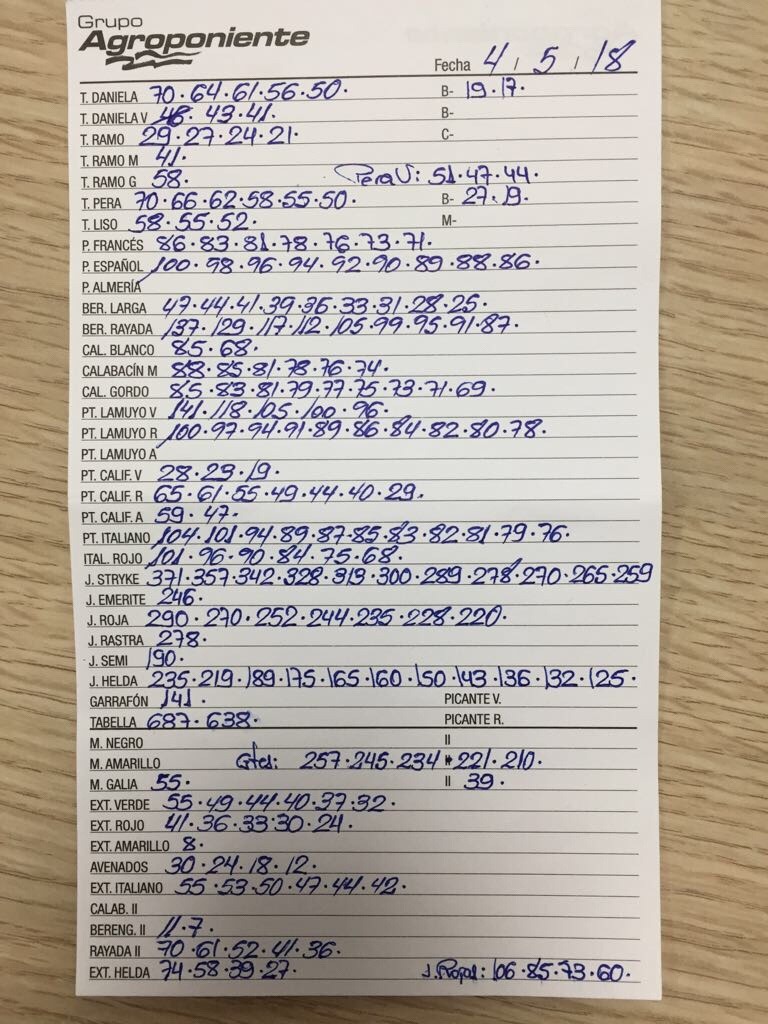 Grupo
Agroponiente
Fecha 4 / 5 / 18
T. DANIELA 70·64·61·56·50· B- 19·17·
T. DANIELA V 46· 43·41· B-
T. RAMO 29·27·24·21· C-
T. RAMO M 41·
T. RAMO G 58· Pera V: 51·47·44·
T. PERA 70·66·62·58·55·50· B- 27·19·
T. LISO 58·55·52· M-
P. FRANCÉS 86·83·81·78·76·73·71·
P. ESPAÑOL 100·98·96·94·92·90·89·88·86·
P. ALMERÍA
BER. LARGA 47·44·41·39·36·33·31·28·25·
BER. RAYADA 137·129·117·112·105·99·95·91·87·
CAL. BLANCO 85·68·
CALABACÍN M 88·85·81·78·76·74·
CAL. GORDO 85·83·81·79·77·75·73·71·69·
PT. LAMUYO V 141·118·105·100·96·
PT. LAMUYO R 100·97·94·91·89·86·84·82·80·78·
PT. LAMUYO A
PT. CALIF. V 28·23·19·
PT. CALIF. R 65·61·55·49·44·40·29·
PT. CALIF. A 59·47·
PT. ITALIANO 104·101·94·89·87·85·83·82·81·79·76·
ITAL. ROJO 101·96·90·84·75·68·
J. STRYKE 371·357·342·328·313·300·289·278·270·265·259
J. EMERITE 246·
J. ROJA 290·270·252·244·235·228·220·
J. RASTRA 278·
J. SEMI 190·
J. HELDA 235·219·189·175·165·160·150·143·136·132·125·
GARRAFÓN 141· PICANTE V.
TABELLA 687·638· PICANTE R.
M. NEGRO II
M. AMARILLO 257·245·234 221·210·
M. GALIA 55· II 39·
EXT. VERDE 55·49·44·40·37·32·
EXT. ROJO 41·36·33·30·24·
EXT. AMARILLO 8·
AVENADOS 30·24·18·12·
EXT. ITALIANO 55·53·50·47·44·42·
CALAB. II
BERENG. II 11·7·
RAYADA II 70·61·52·41·36·
EXT. HELDA 74·58·39·27· 106·85·73·60·